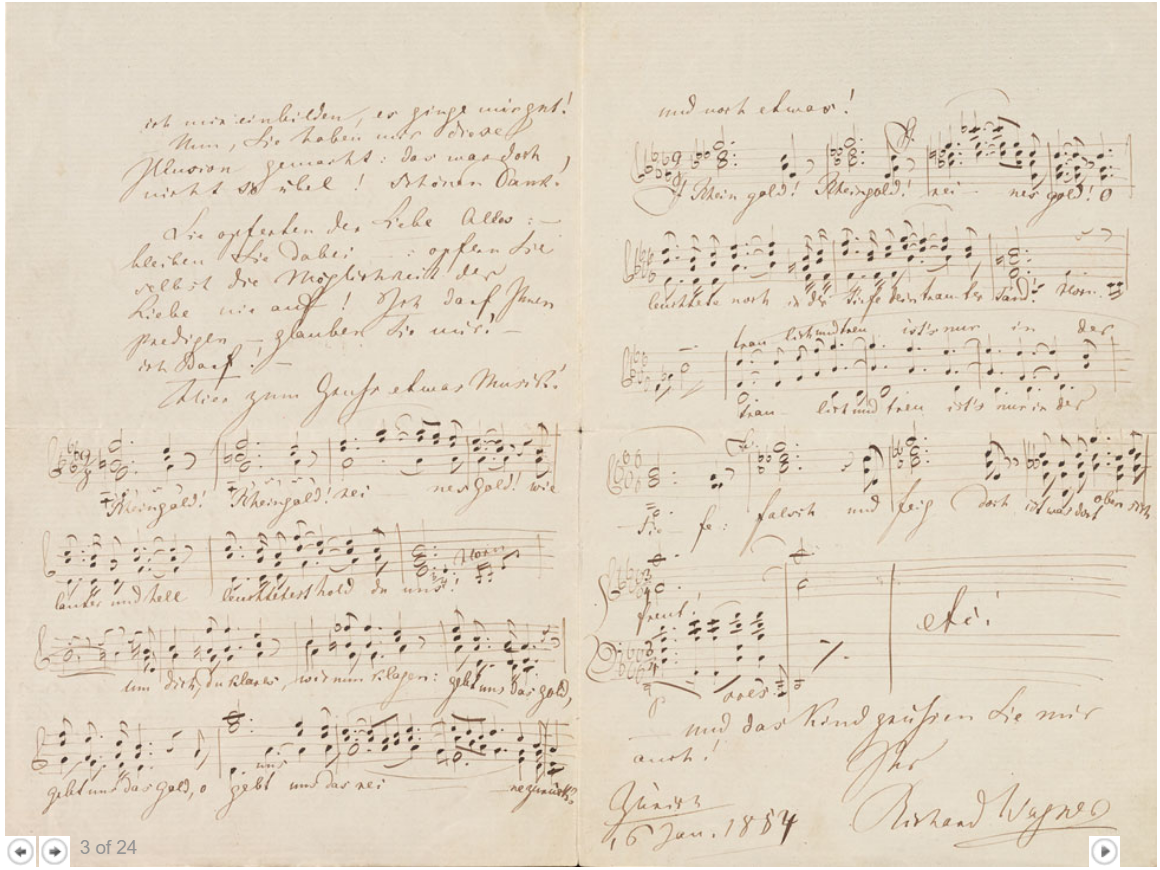 ich mir einbilden, es ginge mir gut!
Nun, Sie haben mir diese
Illusion gemacht: das war doch
nicht so übel! Schönen Dank!
Sie opferten der Liebe Alles: —
bleiben Sie dabei — : opfern Sie
selbst die Möglichkeit der
Liebe nie auf! Ich darf Ihnen
predigen — glauben Sie mir! —
ich darf! —
Hier zum Gruss etwas Musik!
Rheingold! Rheingold! rei nes Gold! wie
lauter und hell leuchtetest hold du uns!
Horn
um dich, du klares, wir nun klagen: gebt uns das Gold,
gebt uns das Gold, o gebt uns das rei ne zurück!
und noch etwas!
Rheingold! Rheingold! rei nes gold! o
leuchtete noch in der Tiefe dein laut'rer Tand! Horn
trau lich und treu ist's nur in der
trau lich und treu ist's nur in der
Tie fe: falsch und feig doch ist was dort oben sich
freut!
etc!
— und das Kind grüssen Sie mir
auch!
Ihr
Richard Wagner
Zürich
16 Jan. 1854
3 of 24